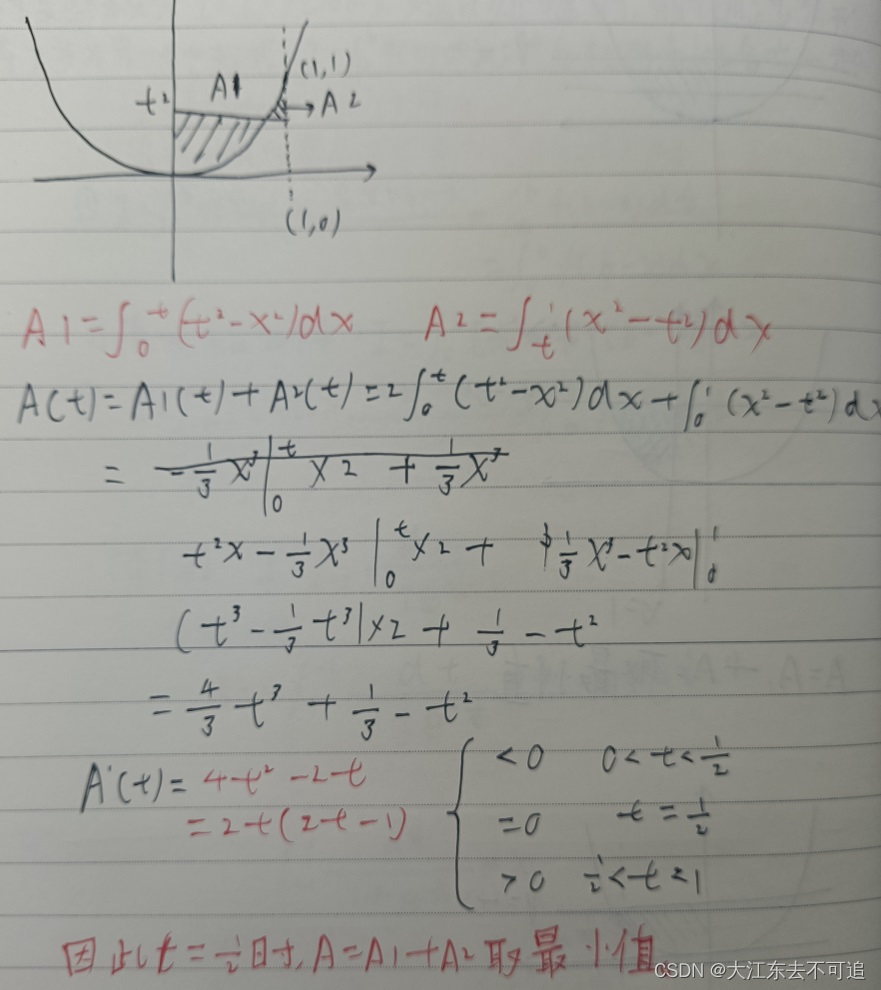 (1,1)
t² A1 → A2
(1,0)
A1=∫₀ᵗ(t²-x²)dx A2=∫ₜ¹(x²-t²)dx
A(t)=A1(t)+A2(t)=2∫₀ᵗ(t²-x²)dx+∫₀¹(x²-t²)dx
= -1/3 x³|₀ᵗ ×2 + 1/3 x³
t²x - 1/3 x³|₀ᵗ ×2 + 1/3 x³-t²x|₀¹
(t³ - 1/3 t³|×2 + 1/3 - t²
= 4/3 t³ + 1/3 - t²
A'(t)=4t²-2t { <0 0<t<1/2
=2t(2t-1) =0 t=1/2
>0 1/2<t<1
因此t=1/2时,A=A1+A2取最小值
CSDN @大江东去不可追